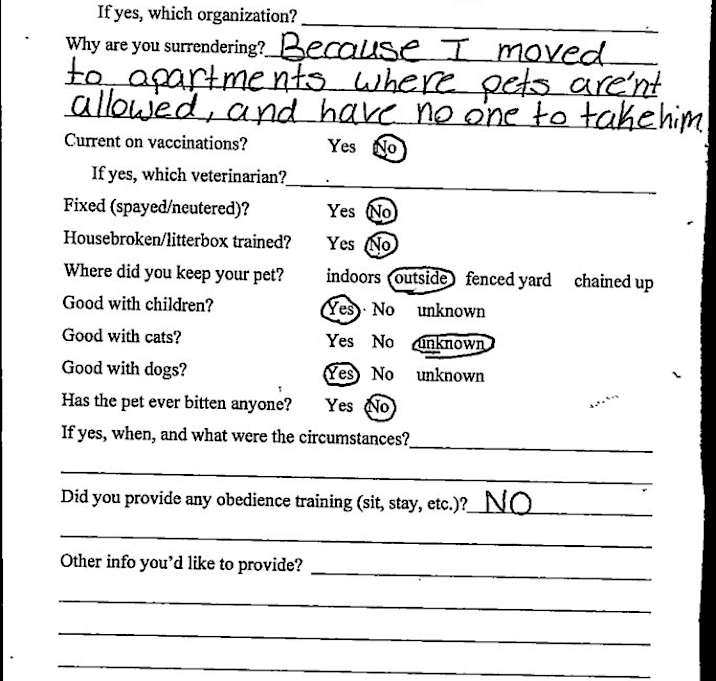 If yes, which organization?
Why are you surrendering? Because I moved
to apartments where pets are'nt
allowed, and have no one to take him
Current on vaccinations? Yes No
If yes, which veterinarian?
Fixed (spayed/neutered)? Yes No
Housebroken/litterbox trained? Yes No
Where did you keep your pet? indoors outside fenced yard chained up
Good with children? Yes No unknown
Good with cats? Yes No unknown
Good with dogs? Yes No unknown
Has the pet ever bitten anyone? Yes No
If yes, when, and what were the circumstances?
Did you provide any obedience training (sit, stay, etc.)? NO
Other info you'd like to provide?